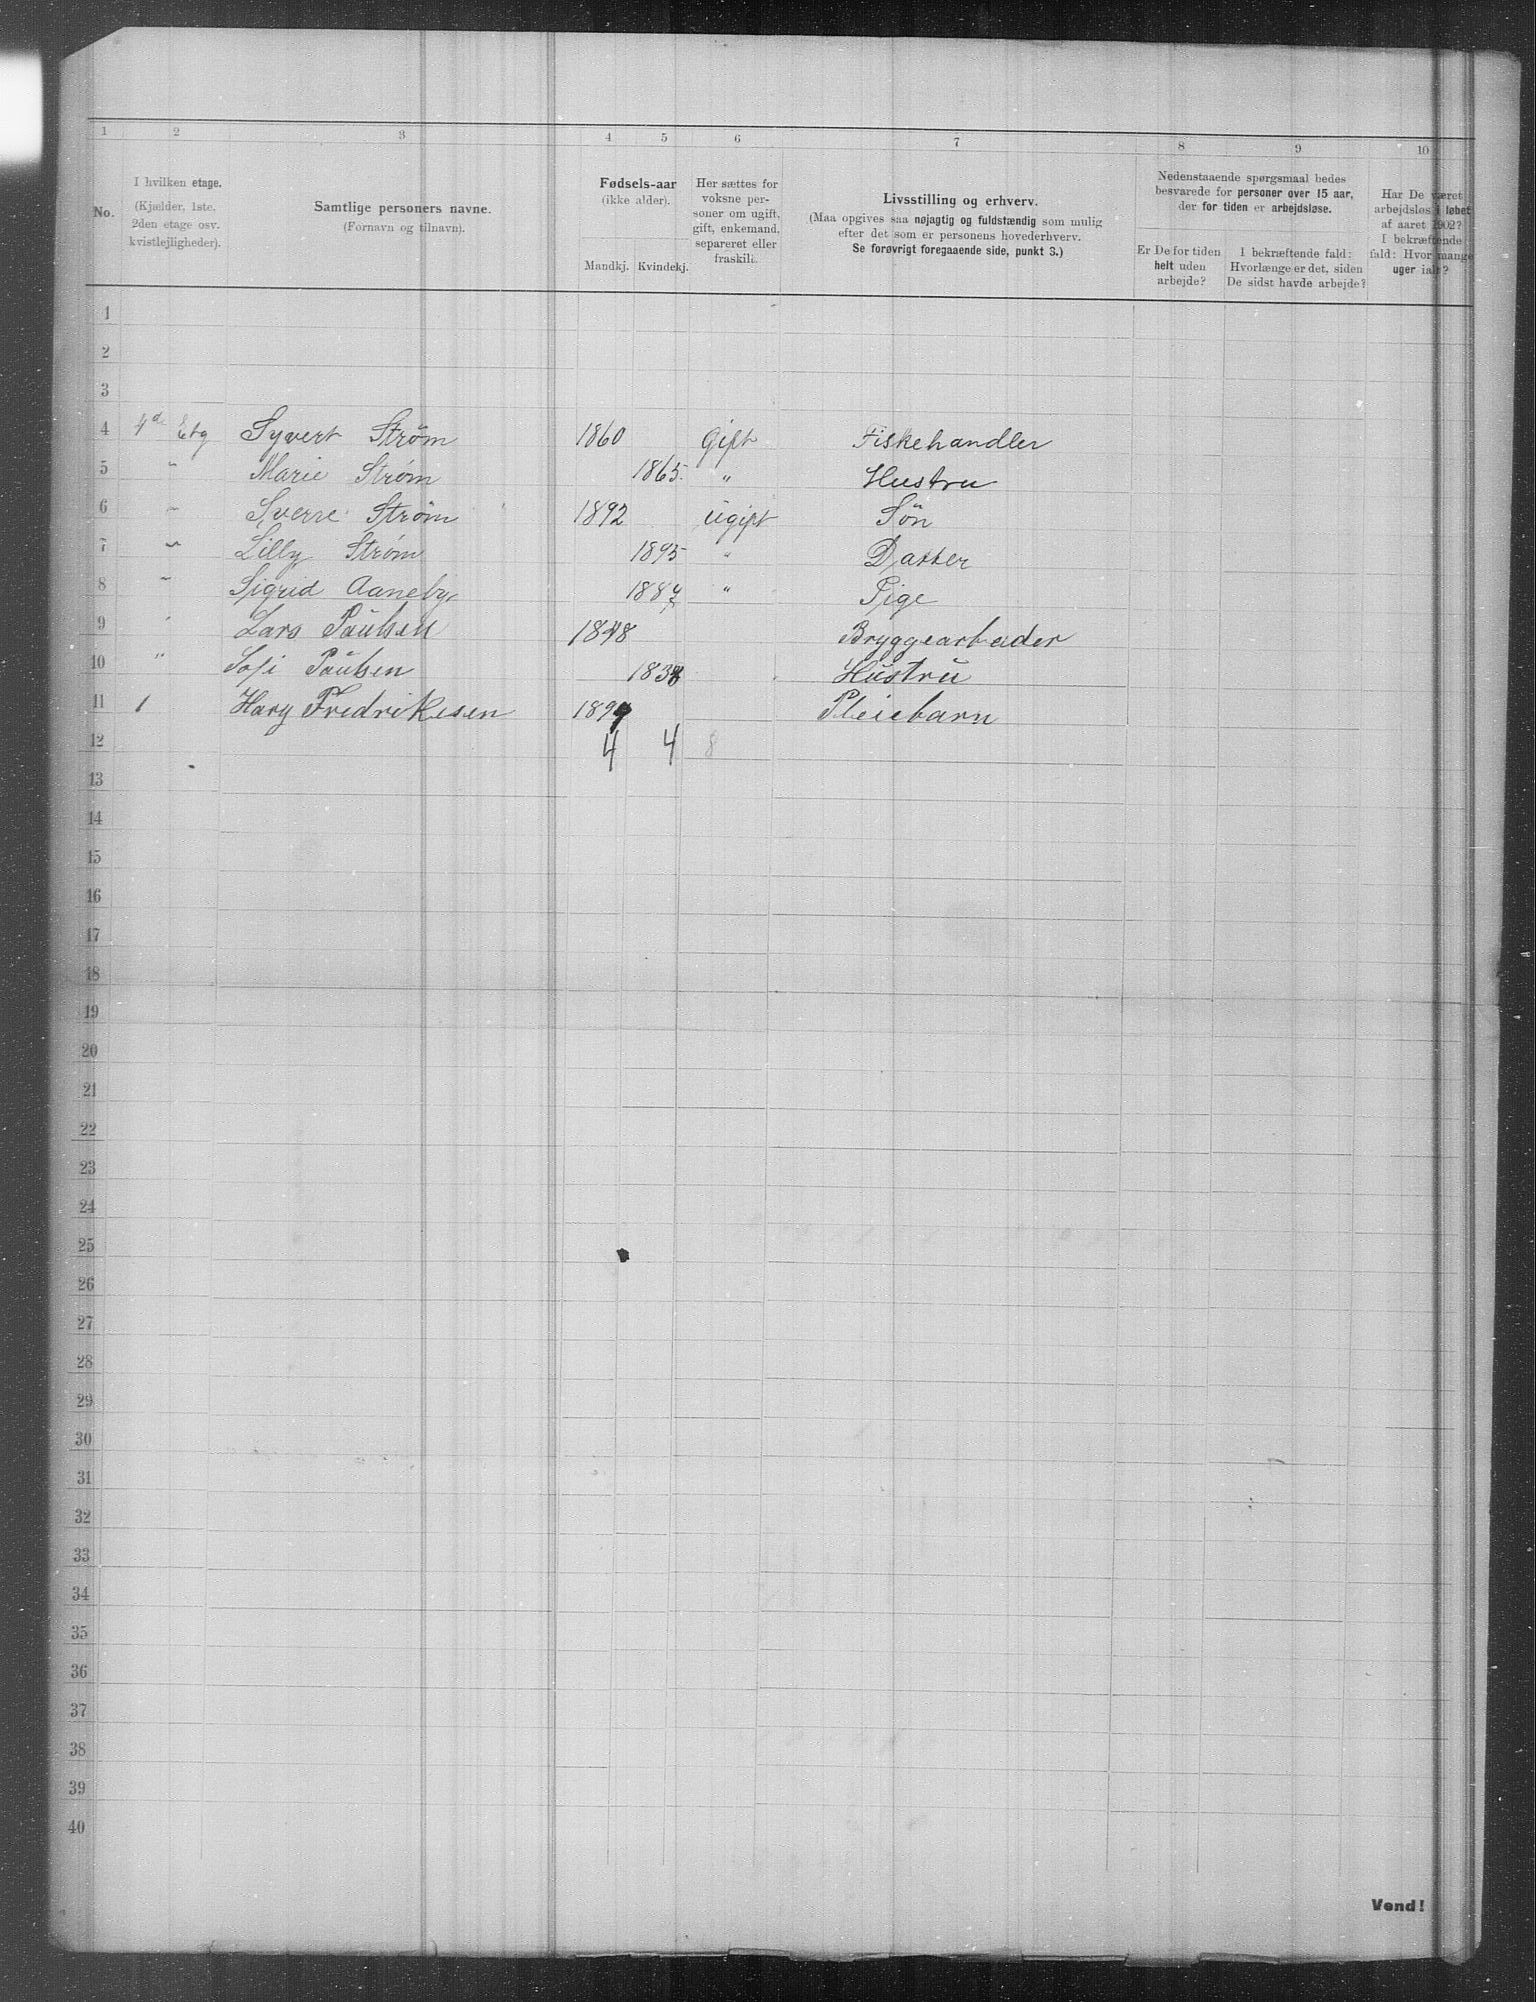 1 2 3 4 5 6 7 8 9 10
No.
I hvilken etage.
(Kjælder, 1ste.
2den etage osv.
kvistlejligheder).
Samtlige personers navne.
(Fornavn og tilnavn).
Fødsels-aar
(ikke alder).
Mandkj. Kvindekj.
Her sættes for
voksne per-
soner om ugift,
gift, enkemand,
separeret eller
fraskilt.
Livsstilling og erhverv.
(Maa opgives saa nøjagtig og fuldstændig som mulig
efter det som er personens hovederhverv.
Se forøvrigt foregaaende side, punkt 3.)
Nedenstaaende spørgsmaal bedes
besvarede for personer over 15 aar,
der for tiden er arbejdsløse.
Er De for tiden
helt uden
arbejde?
I bekræftende fald:
Hvorlænge er det, siden
De sidst havde arbejde?
Har De været
arbejdsløs i løbet
af aaret 1902?
I bekræftende
fald: Hvor mange
uger ialt?
1
2
3
4 4d Etg Syvert Strøm 1860 Gift Fiskehandler
5 " Marie Strøm 1865 " Hustru
6 " Sverre Strøm 1892 ugift Sön
7 " Lilly Strøm 1895 " Datter
8 " Sigrid Aaneby 1884 " Pige
9 " Lars Paulsen 1848 Bryggearbeider
10 " Sofi Paulsen 1838 Hustru
11 " Hary Fredriksen 1894 Pleiebarn
12 4 4 8
13
14
15
16
17
18
19
20
21
22
23
24
25
26
27
28
29
30
31
32
33
34
35
36
37
38
39
40
Vend!